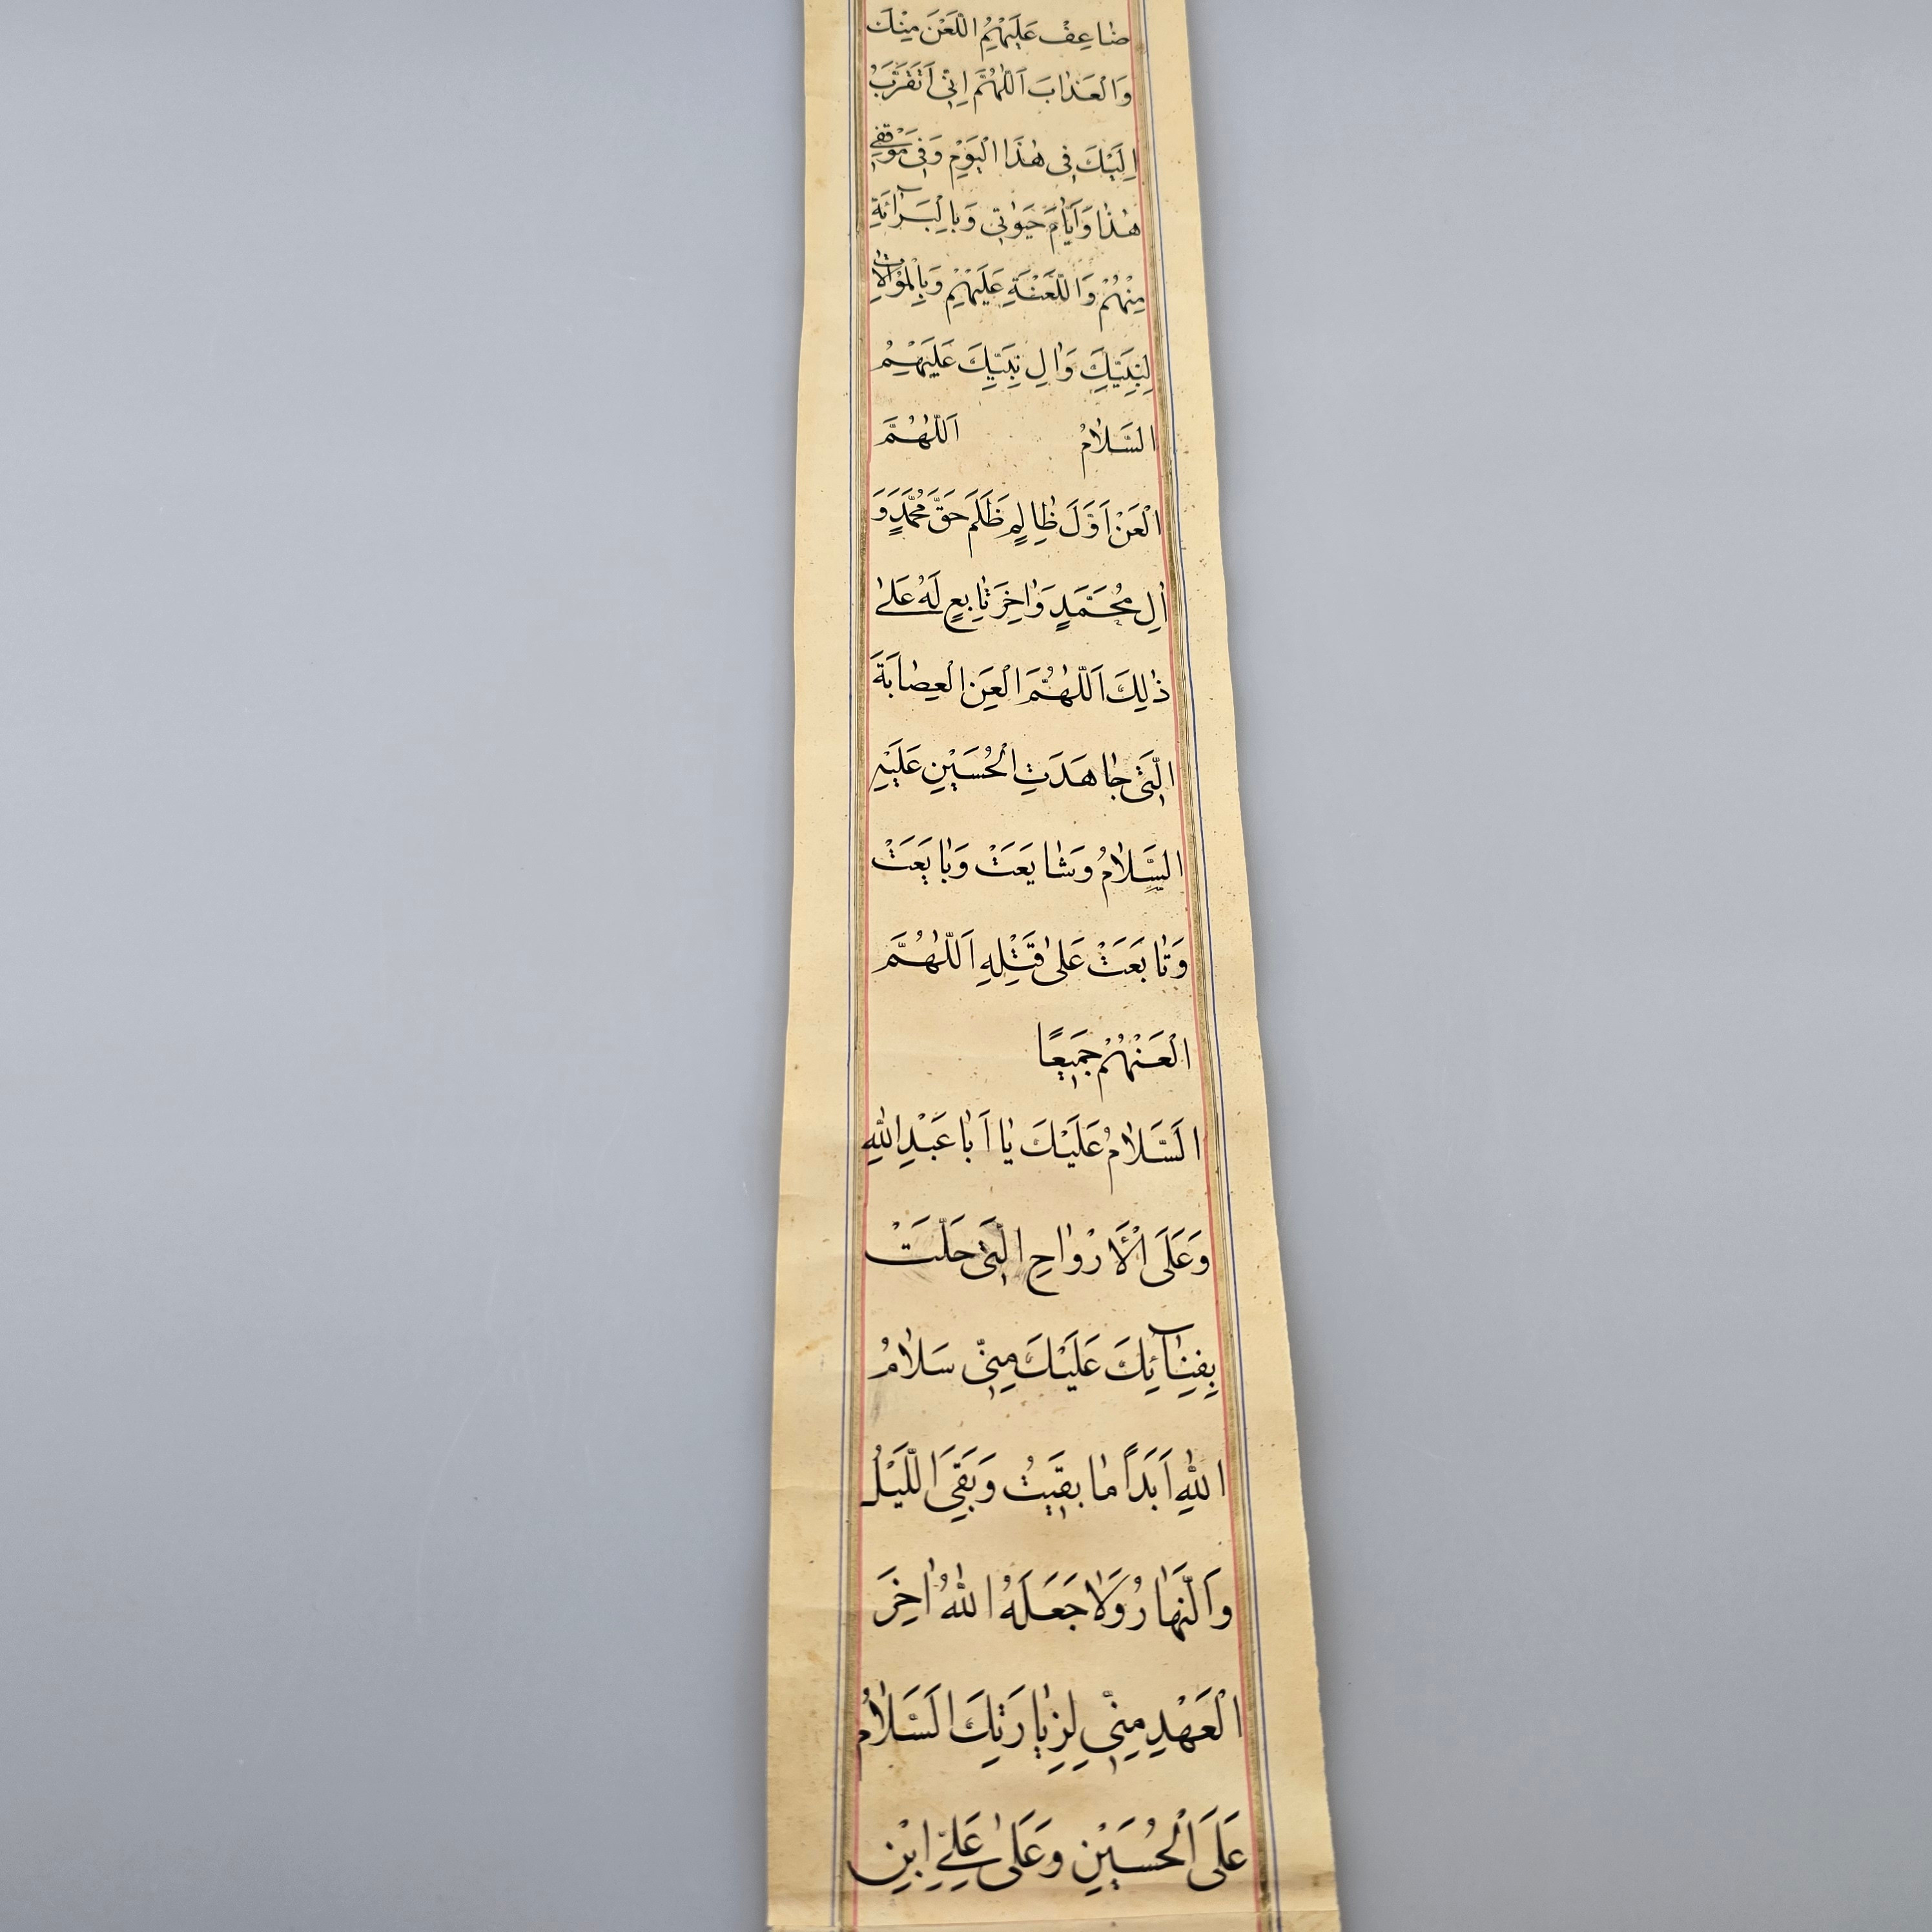 ضٰاعِفْ عَلَيْهِمُ اللَّعْنَ مِنْكَ
وَالْعَذٰابَ اَللّٰهُمَّ اِنّٖى اَتَقَرَّبُ
اِلَيْكَ فٖى هٰذَا الْيَوْمِ وَفٖى مَوْقِفٖى
هٰذٰا وَاَيّٰامَ حَيٰوتٖى وَبِالْبَرٰٓائَةِ
مِنْهُمْ وَاللَّعْنَةِ عَلَيْهِمْ وَبِالْمُوٰالٰاتِ
لِنَبِيِّكَ وَاٰلِ نَبِيِّكَ عَلَيْهِمُ
السَّلٰامُ اَللّٰهُمَّ
الْعَنْ اَوَّلَ ظٰالِمٍ ظَلَمَ حَقَّ مُحَمَّدٍ وَ
اٰلِ مُحَمَّدٍ وَاٰخِرَ تٰابِعٍ لَهُ عَلىٰ
ذٰلِكَ اَللّٰهُمَّ الْعَنِ الْعِصٰابَةَ
الَّتٖى جٰاهَدَتِ الْحُسَيْنِ عَلَيْهِ
السَّلٰامُ وَشٰايَعَتْ وَبٰايَعَتْ
وَتٰابَعَتْ عَلىٰ قَتْلِهِ اَللّٰهُمَّ
الْعَنْهُمْ جَمٖيعًا
اَلسَّلٰامُ عَلَيْكَ يٰا اَبٰا عَبْدِ اللّٰهِ
وَعَلَى الْأَرْوٰاحِ الَّتٖى حَلَّتْ
بِفِنٰٓائِكَ عَلَيْكَ مِنّٖى سَلٰامُ
اللّٰهِ اَبَدًا مٰا بَقٖيتُ وَبَقِىَ اللَّيْلُ
وَالنَّهٰارُ وَلٰا جَعَلَهُ اللّٰهُ اٰخِرَ
الْعَهْدِ مِنّٖى لِزِيٰارَتِكَ اَلسَّلٰامُ
عَلَى الْحُسَيْنِ وَعَلىٰ عَلِىِّ ابْنِ